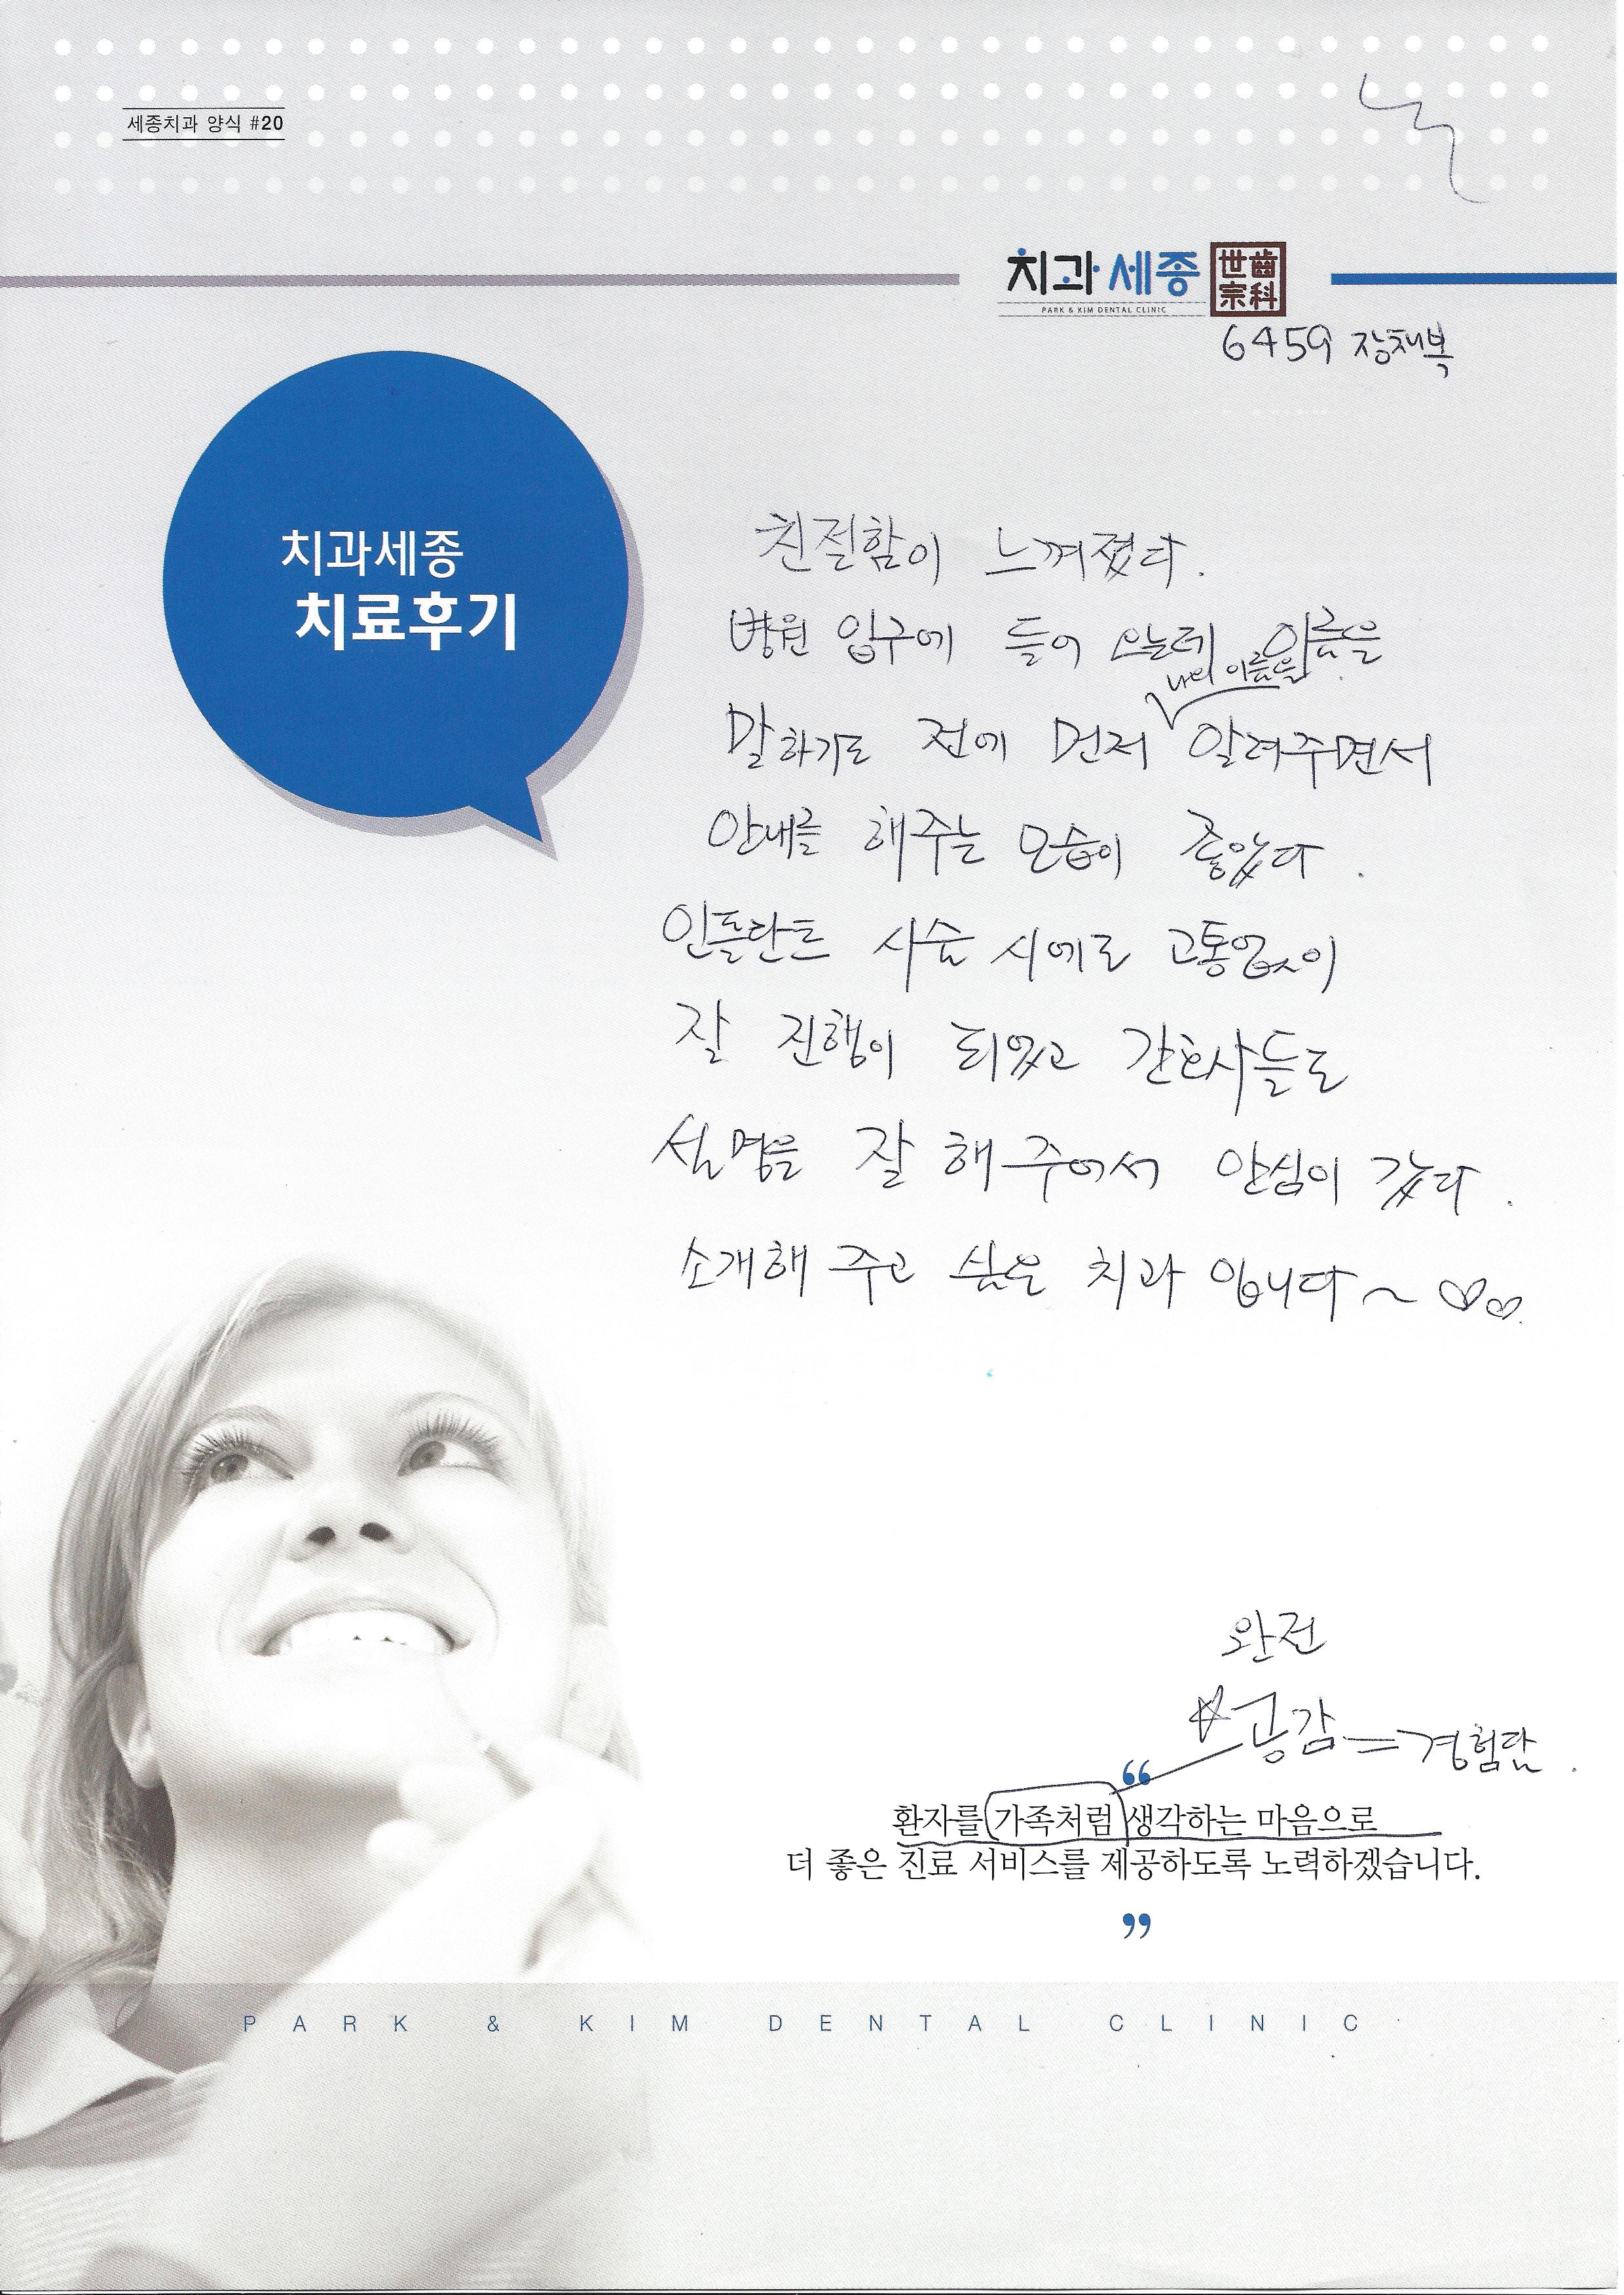 세종치과 양식 #20
치과세종 世齒宗科
PARK & KIM DENTAL CLINIC
6459 장채복
치과세종
치료후기
친절함이 느껴졌다.
병원 입구에 들어 오는데 이름을
나의 이름을
말하기도 전에 먼저 알려주면서
안내를 해주는 모습이 좋았다.
인플란트 사술 시에도 고통없이
잘 진행이 되었고 간호사들도
설명을 잘 해 주어서 안심이 갔다.
소개해 주고 싶은 치과 입니다~ ♡♡
완전
☆공감=경험담.
“
환자를 가족처럼 생각하는 마음으로
더 좋은 진료 서비스를 제공하도록 노력하겠습니다.
”
PARK & KIM DENTAL CLINIC